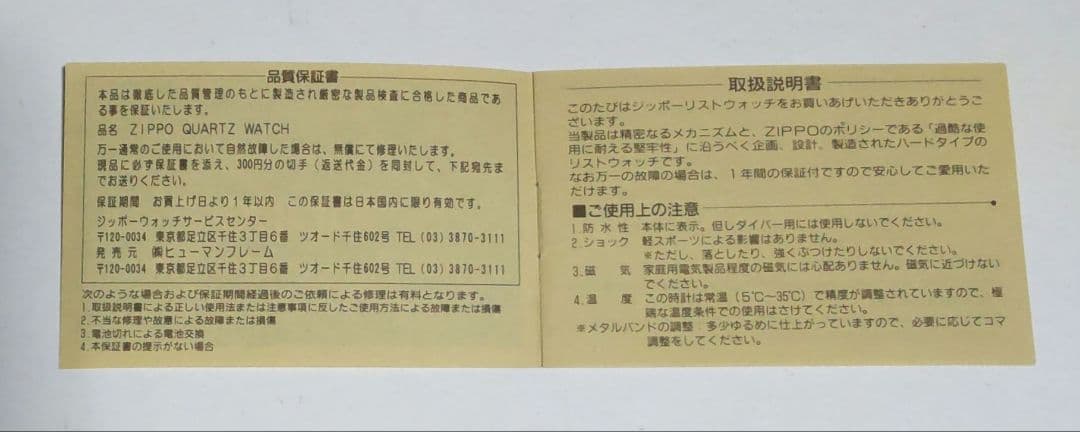 品質保証書
本品は徹底した品質管理のもとに製造され厳密な製品検査に合格した商品であ
る事を保証いたします。
品名 ZIPPO QUARTZ WATCH
万一通常のご使用において自然故障した場合は、無償にて修理いたします。
現品に必ず保証書を添え、300円分の切手（返送代金）を同封して、下記宛先ま
でお送りください。
保証期間 お買上げ日より1年以内 この保証書は日本国内に限り有効です。
ジッポーウォッチサービスセンター
〒120-0034 東京都足立区千住3丁目6番 ツオード千住602号 TEL (03) 3870-3111
発売元 ㈱ヒューマンフレーム
〒120-0034 東京都足立区千住3丁目6番 ツオード千住602号 TEL (03) 3870-3111
次のような場合および保証期間経過後のご依頼による修理は有料となります。
1.取扱説明書による正しい使用法または注意事項に反したご使用方法による故障または損傷
2.不当な修理や故意による故障または損傷
3.電池切れによる電池交換
4.本保証書の提示がない場合
取扱説明書
このたびはジッポーリストウォッチをお買いあげいただきありがとうご
ざいます。
当製品は精密なるメカニズムと、ZIPPOのポリシーである「過酷な使
用に耐える堅牢性」に沿うべく企画、設計、製造されたハードタイプの
リストウォッチです。
なお万一の故障の場合は、1年間の保証付ですので安心してご愛用いた
だけます。
■ご使用上の注意
1.防水性 本体に表示。但しダイバー用には使用しないでください。
2.ショック 軽スポーツによる影響はありません。
※ただし、落としたり、強くぶつけたりしないでください。
3.磁気 家庭用電気製品程度の磁気には心配ありません。磁気に近づけない
でください。
4.温度 この時計は常温（5℃〜35℃）で精度が調整されていますので、極
端な温度条件での使用はさけてください。
※メタルバンドの調整：多少ゆるめに仕上がっていますので、必要に応じてコマ
調整をしてください。